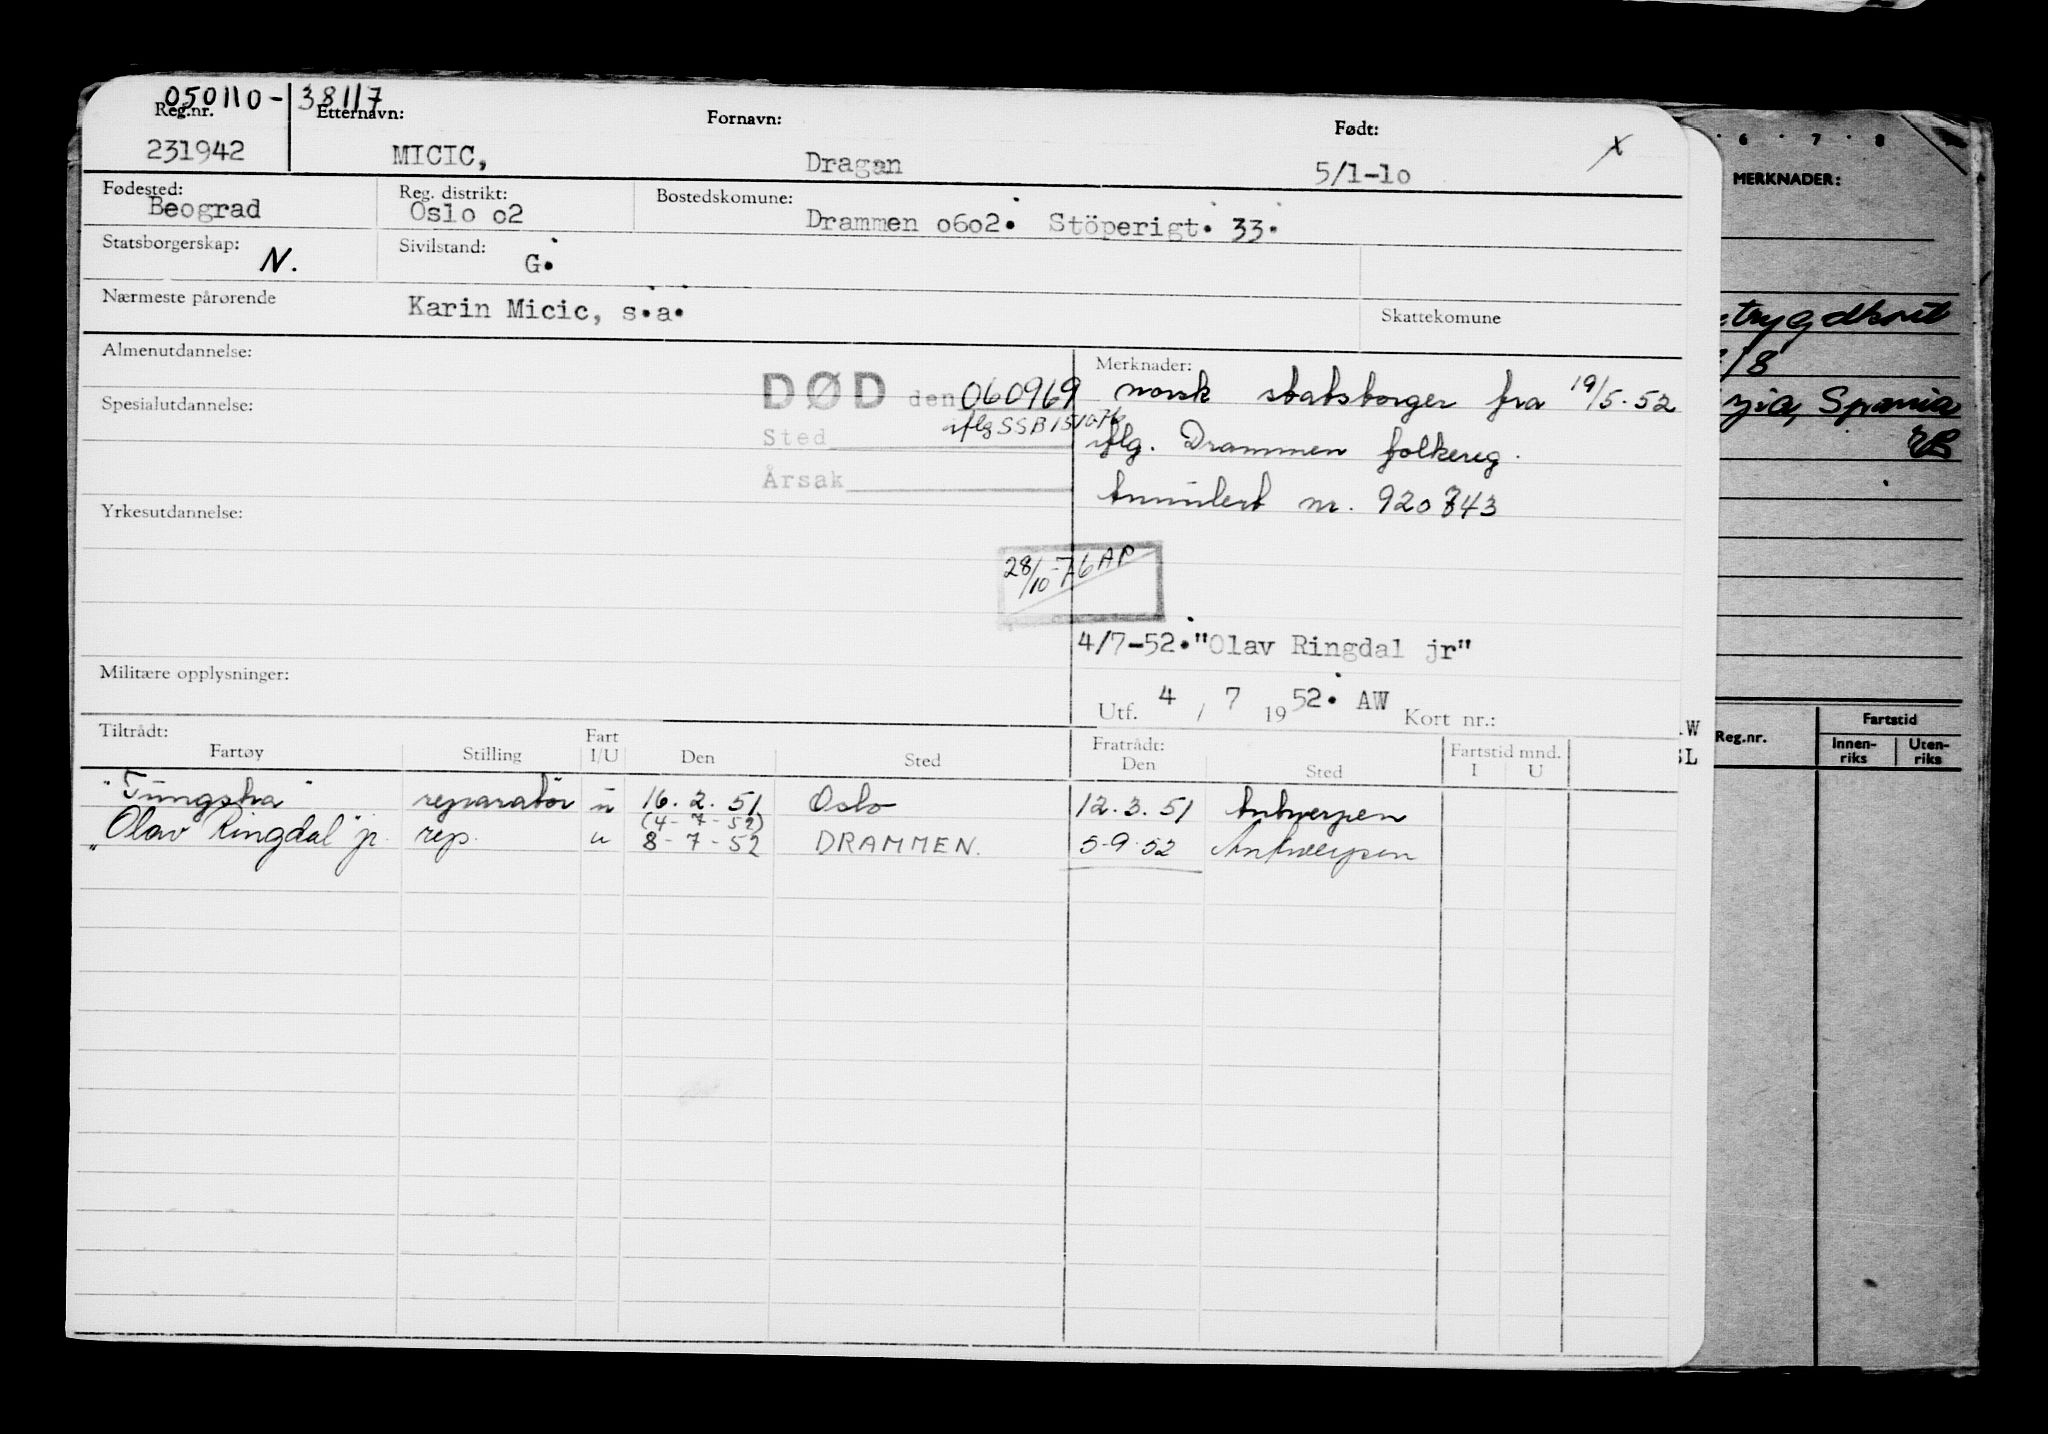 050110-38117
Reg.nr. Etternavn: Fornavn: Født:
231942 MICIC, Dragan 5/1-10 x
Fødested: Reg. distrikt: Bostedskomune:
Beograd Oslo 02 Drammen 0602. Stöperigt. 33.
Statsborgerskap: Sivilstand:
N. G.
Nærmeste pårørende Karin Micic, s.a. Skattekomune
Almenutdannelse: Merknader:
DØD den 060969 norsk statsborger fra 19/5.52
Spesialutdannelse: iflg SSB 151076
Sted iflg. Drammen folkereg.
Årsak
Annulert nr. 920843
Yrkesutdannelse:
28/10-76 AP
4/7-52."Olav Ringdal jr"
Militære opplysninger:
Utf. 4 / 7 1952. AW Kort nr.:
Tiltrådt: Fart Fratrådt: Fartstid mnd.
Fartøy Stilling I/U Den Sted Den Sted I U
"Tungsha" reparatör u 16.2.51 Oslo 12.3.51 Antwerpen
(4-7-52)
"Olav Ringdal" jr. rep. u 8-7-52 DRAMMEN. 5-9-52 Antwerpen
6 7 8
MERKNADER:
trygdkort
/8
Spania
RB
W
Reg.nr. Fartstid
L
Innen-riks Uten-riks